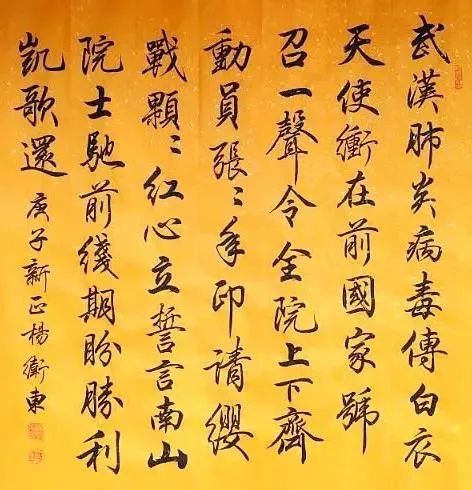 武漢肺炎病毒傳白衣
天使衝在前國家號
召一聲令全院上下齊
動員張〻手印請纓
戰顆〻红心立誓言南山
院士馳前綫期盼勝利
凱歌還 庚子新正楊衛東